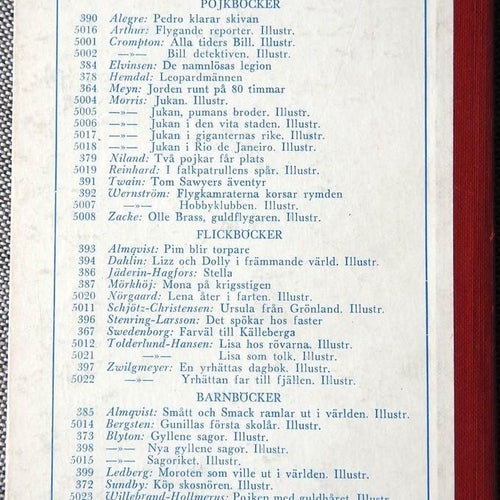 POJKBÖCKER
390 Alegre: Pedro klarar skivan
5016 Arthur: Flygande reporter. Illustr.
5001 Crompton: Alla tiders Bill. Illustr.
5002 —»— Bill detektiven. Illustr.
384 Elvinsen: De namnlösas legion
378 Hemdal: Leopardmännen
364 Meyn: Jorden runt på 80 timmar
5004 Morris: Jukan. Illustr.
5005 —»— Jukan, pumans broder. Illustr.
5006 —»— Jukan i den vita staden. Illustr.
5017 —»— Jukan i giganternas rike. Illustr.
5018 —»— Jukan i Rio de Janeiro. Illustr.
379 Niland: Två pojkar får plats
5019 Reinhard: I falkpatrullens spår. Illustr.
391 Twain: Tom Sawyers äventyr
392 Wernström: Flygkamraterna korsar rymden
5007 —»— Hobbyklubben. Illustr.
5008 Zacke: Olle Brass, guldflygaren. Illustr.
FLICKBÖCKER
393 Almqvist: Pim blir torpare
394 Dahlin: Lizz och Dolly i främmande värld. Illustr.
386 Jäderin-Hagfors: Stella
387 Mörkhöj: Mona på krigsstigen
5020 Nörgaard: Lena åter i farten. Illustr.
5011 Schjötz-Christensen: Ursula från Grönland. Illustr.
396 Stenring-Larsson: Det spökar hos faster
367 Swedenborg: Farväl till Källeberga
5012 Tolderlund-Hansen: Lisa hos rövarna. Illustr.
5021 —»— Lisa som tolk. Illustr.
397 Zwilgmeyer: En yrhättas dagbok. Illustr.
5022 —»— Yrhättan far till fjällen. Illustr.
BARNBÖCKER
385 Almqvist: Smått och Smack ramlar ut i världen. Illustr.
5014 Bergsten: Gunillas första skolår. Illustr.
373 Blyton: Gyllene sagor. Illustr.
398 —»— Nya gyllene sagor. Illustr.
5015 —»— Sagoriket. Illustr.
399 Ledberg: Moroten som ville ut i världen. Illustr.
372 Sundby: Köp skosnören. Illustr.
5023 Willebrand-Hollmerus: Pojken med guldhåret. Illustr.